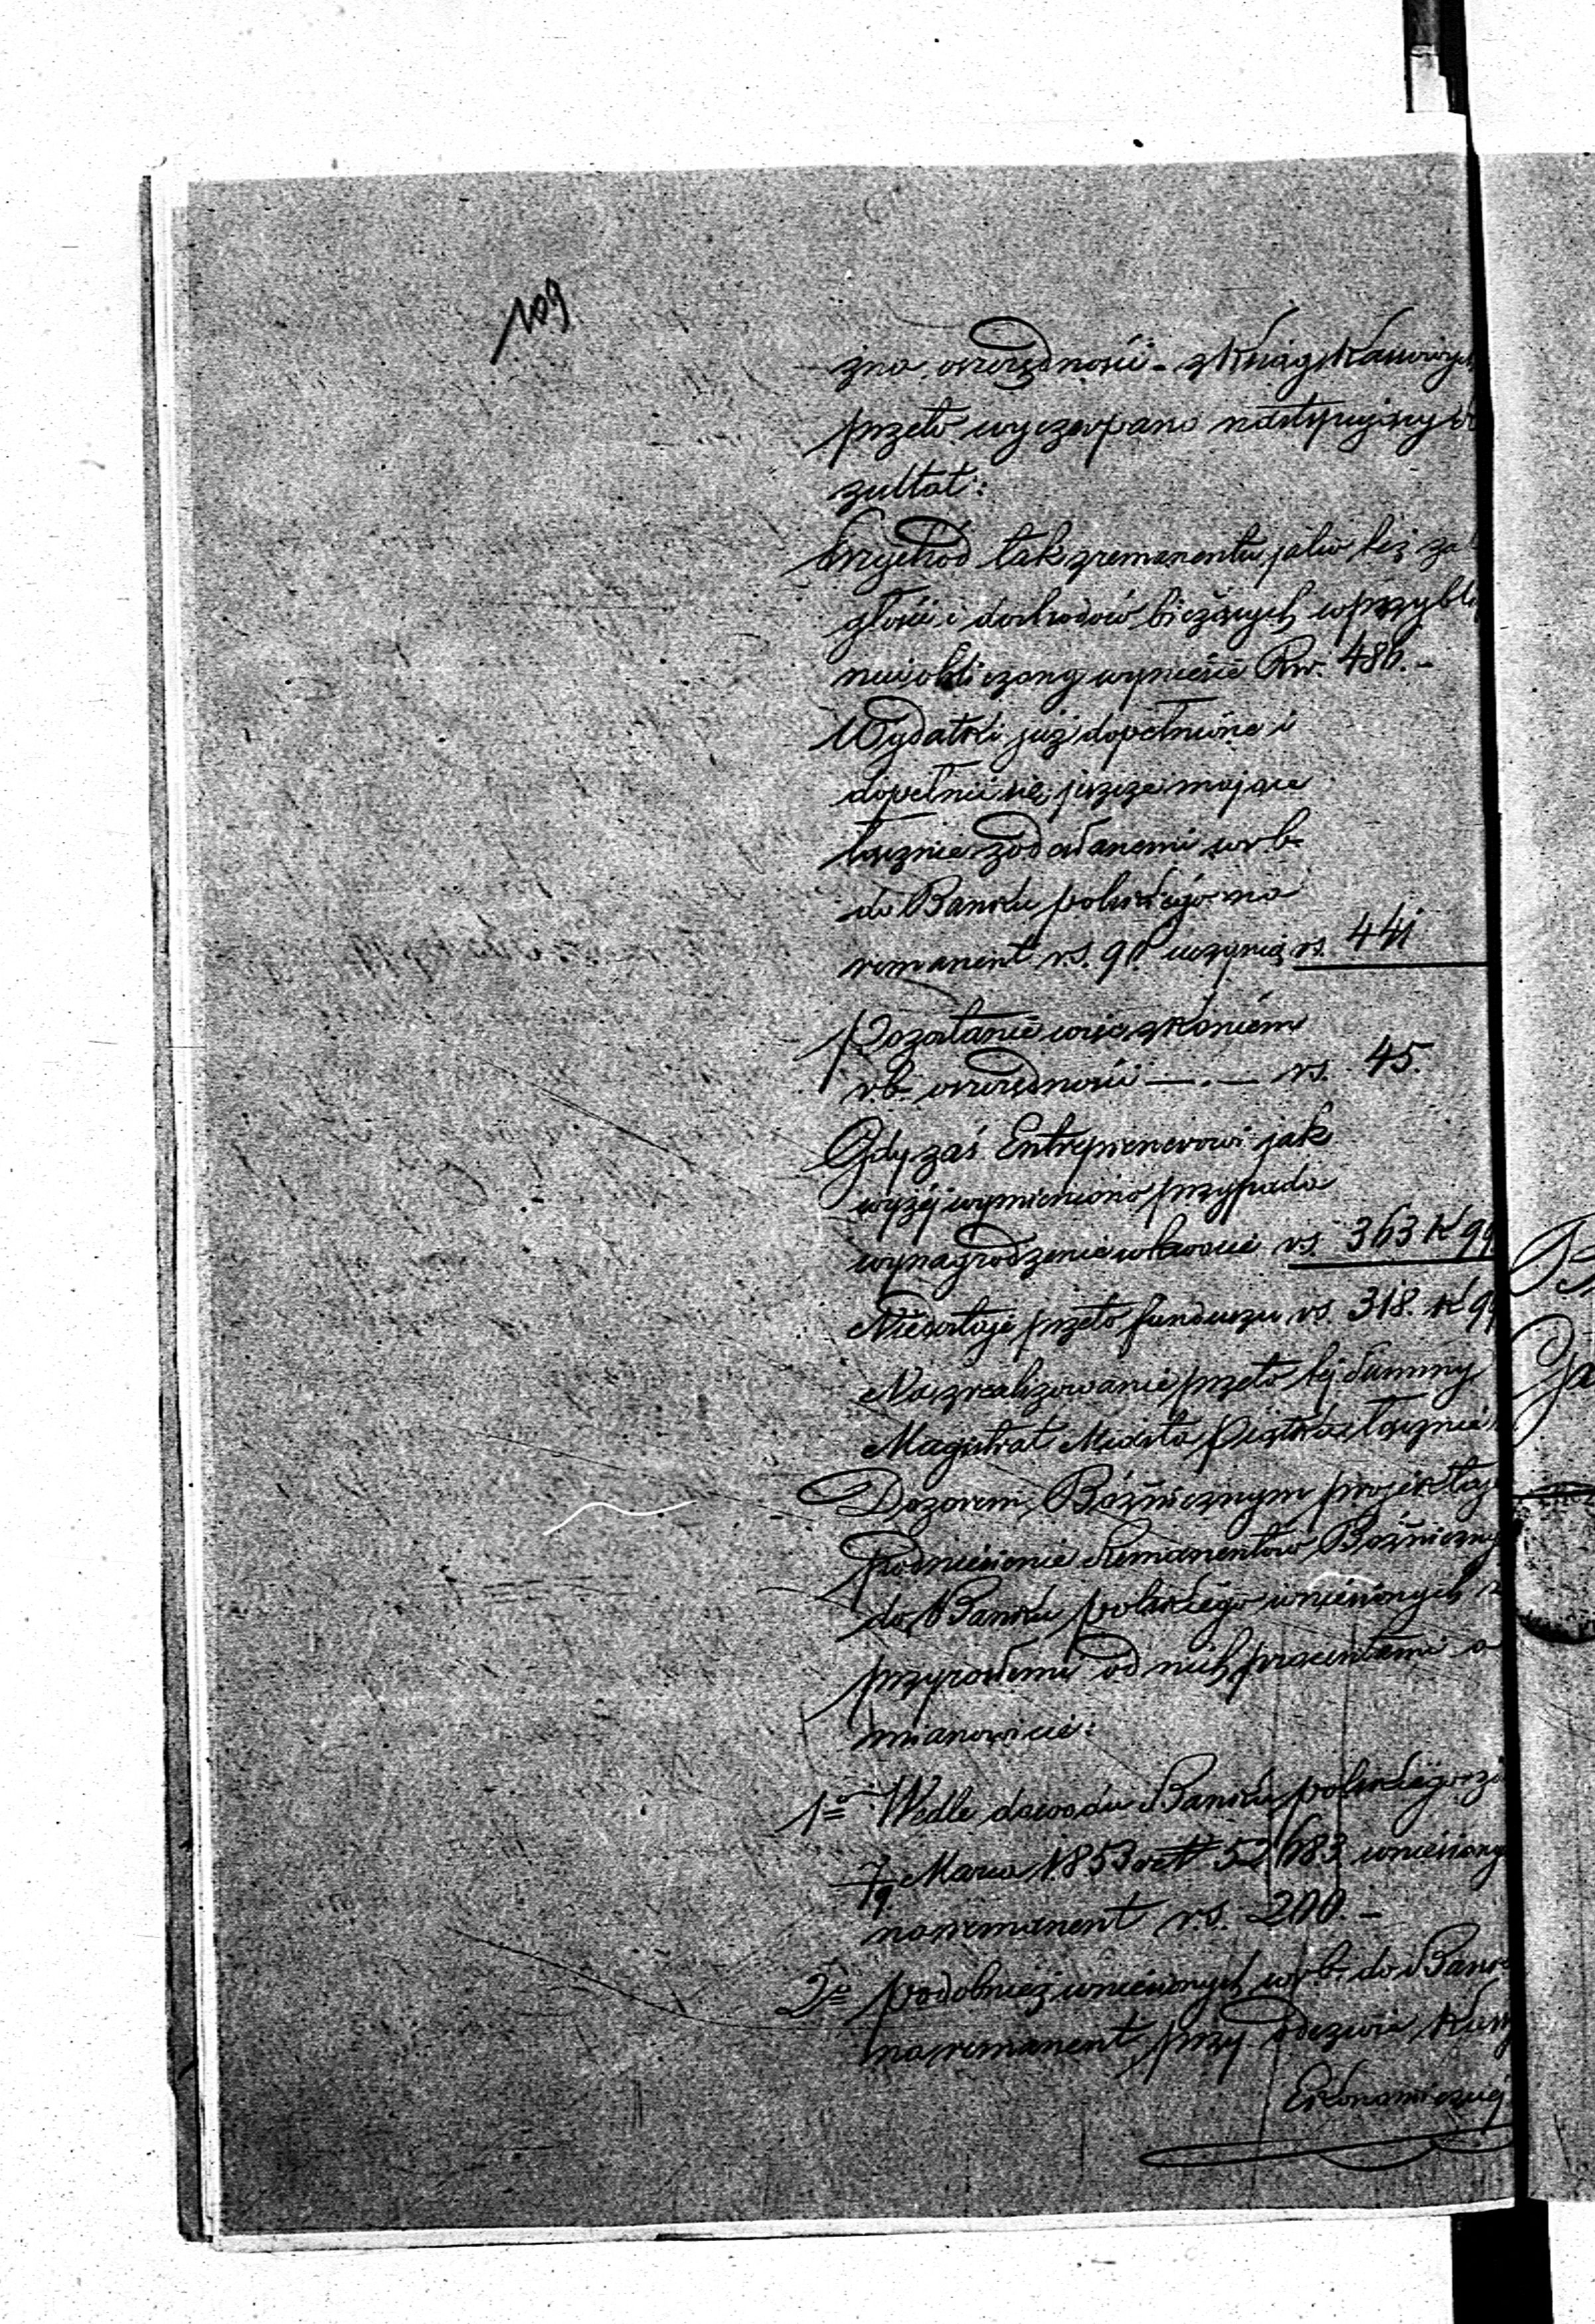 109
żna oszczędności - z Ksiąg Kassowych
przeto wyczerpano następujący
zultat:
Przychód tak z remanentu jako też za
głości i dochodów bieżących w przybli
niu obliczony wyniesie Rsr. 486. -
Wydatki już dopełnione i
dopełnić się jeszcze mające
łącznie z oddanemi w r.b.
do Banku polskiego na
remanent r.s. 90 uczynią rs. 441
Pozostanie więc z końcem
r.b. oszczędności —.— rs. 45.
Gdy zaś Entreprenerowi jak
wyżej wymieniono przypada
wynagrodzenie w kwocie rs. 363 K 99
Niedostaje przeto funduszu rs. 318. K 99
Na zrealizowanie przeto tej Summy
Magistrat Miasta Piątku łącznie
Dozorem Bóżnicznym projektuje
podniesienie Remanentów Bóżniczny
do Banku polskiego wniesionych z
przyrosłemi od nich procentami a
mianowicie:
1o Wedle dowodu Banku polskiego z d
7/19 Marca 1853 No 52,683 wniesiony
na remanent r.s. 200. -
2o podobnież wniesionych w r.b. do Bank
na remanent przy odezwie Kassy
Ekonomicznej